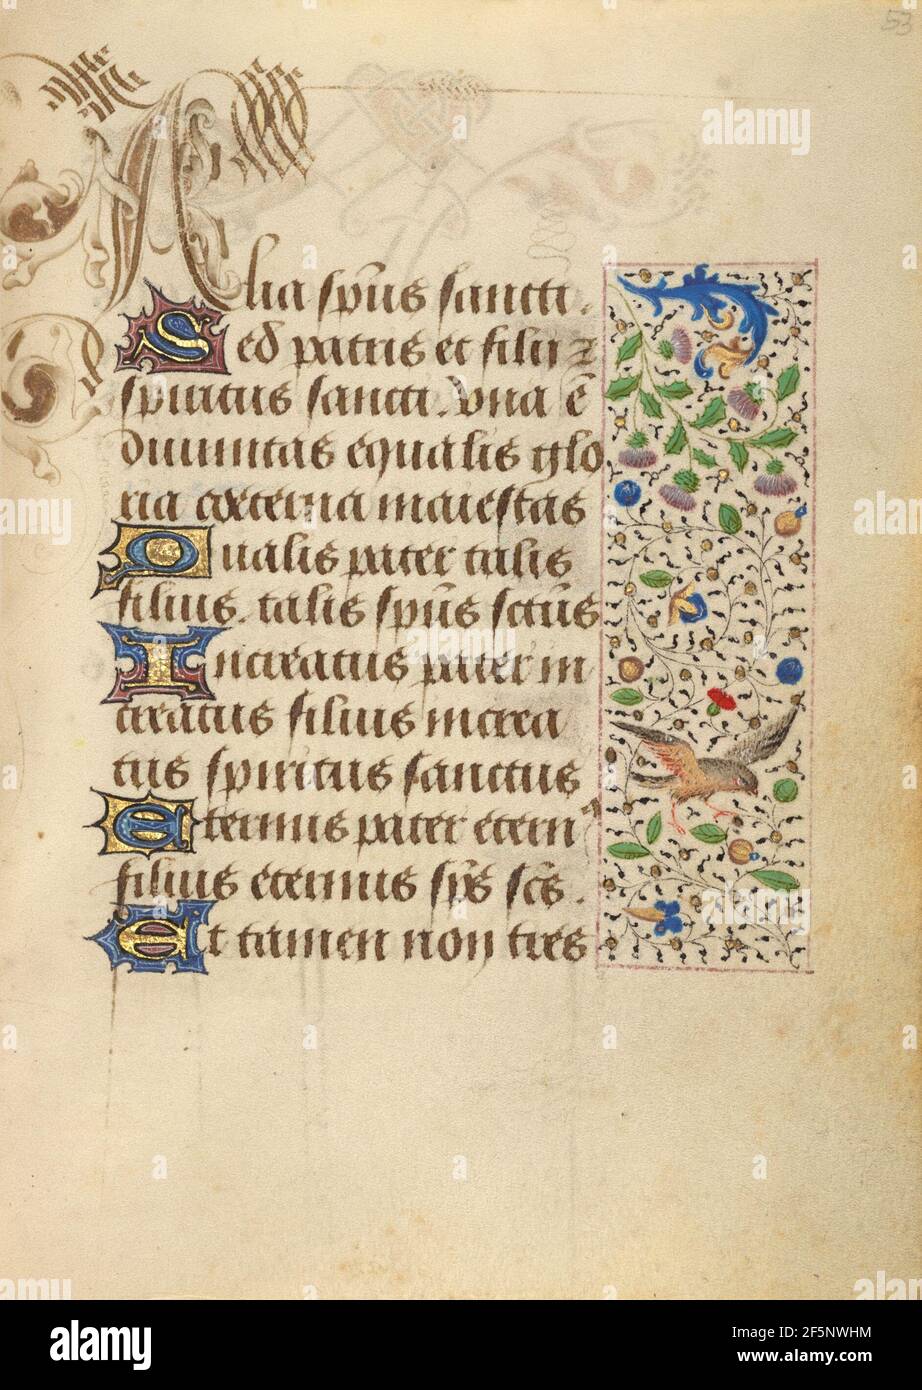 53
Alia sp̄us sancti.
Sed patris et filii ⁊
spiritus sancti. Vna ē
diuinitas equalis glo
ria coeterna maiestas
Qualis pater talis
filius. talis sp̄us sctūs
Increatus pater in
creatus filius increa
tus spiritus sanctus
Eternus pater etern⁹
filius eternus sp̄s sc̄s.
Et tamen non tres
alamy
Image ID: 2F5NWHM
www.alamy.com